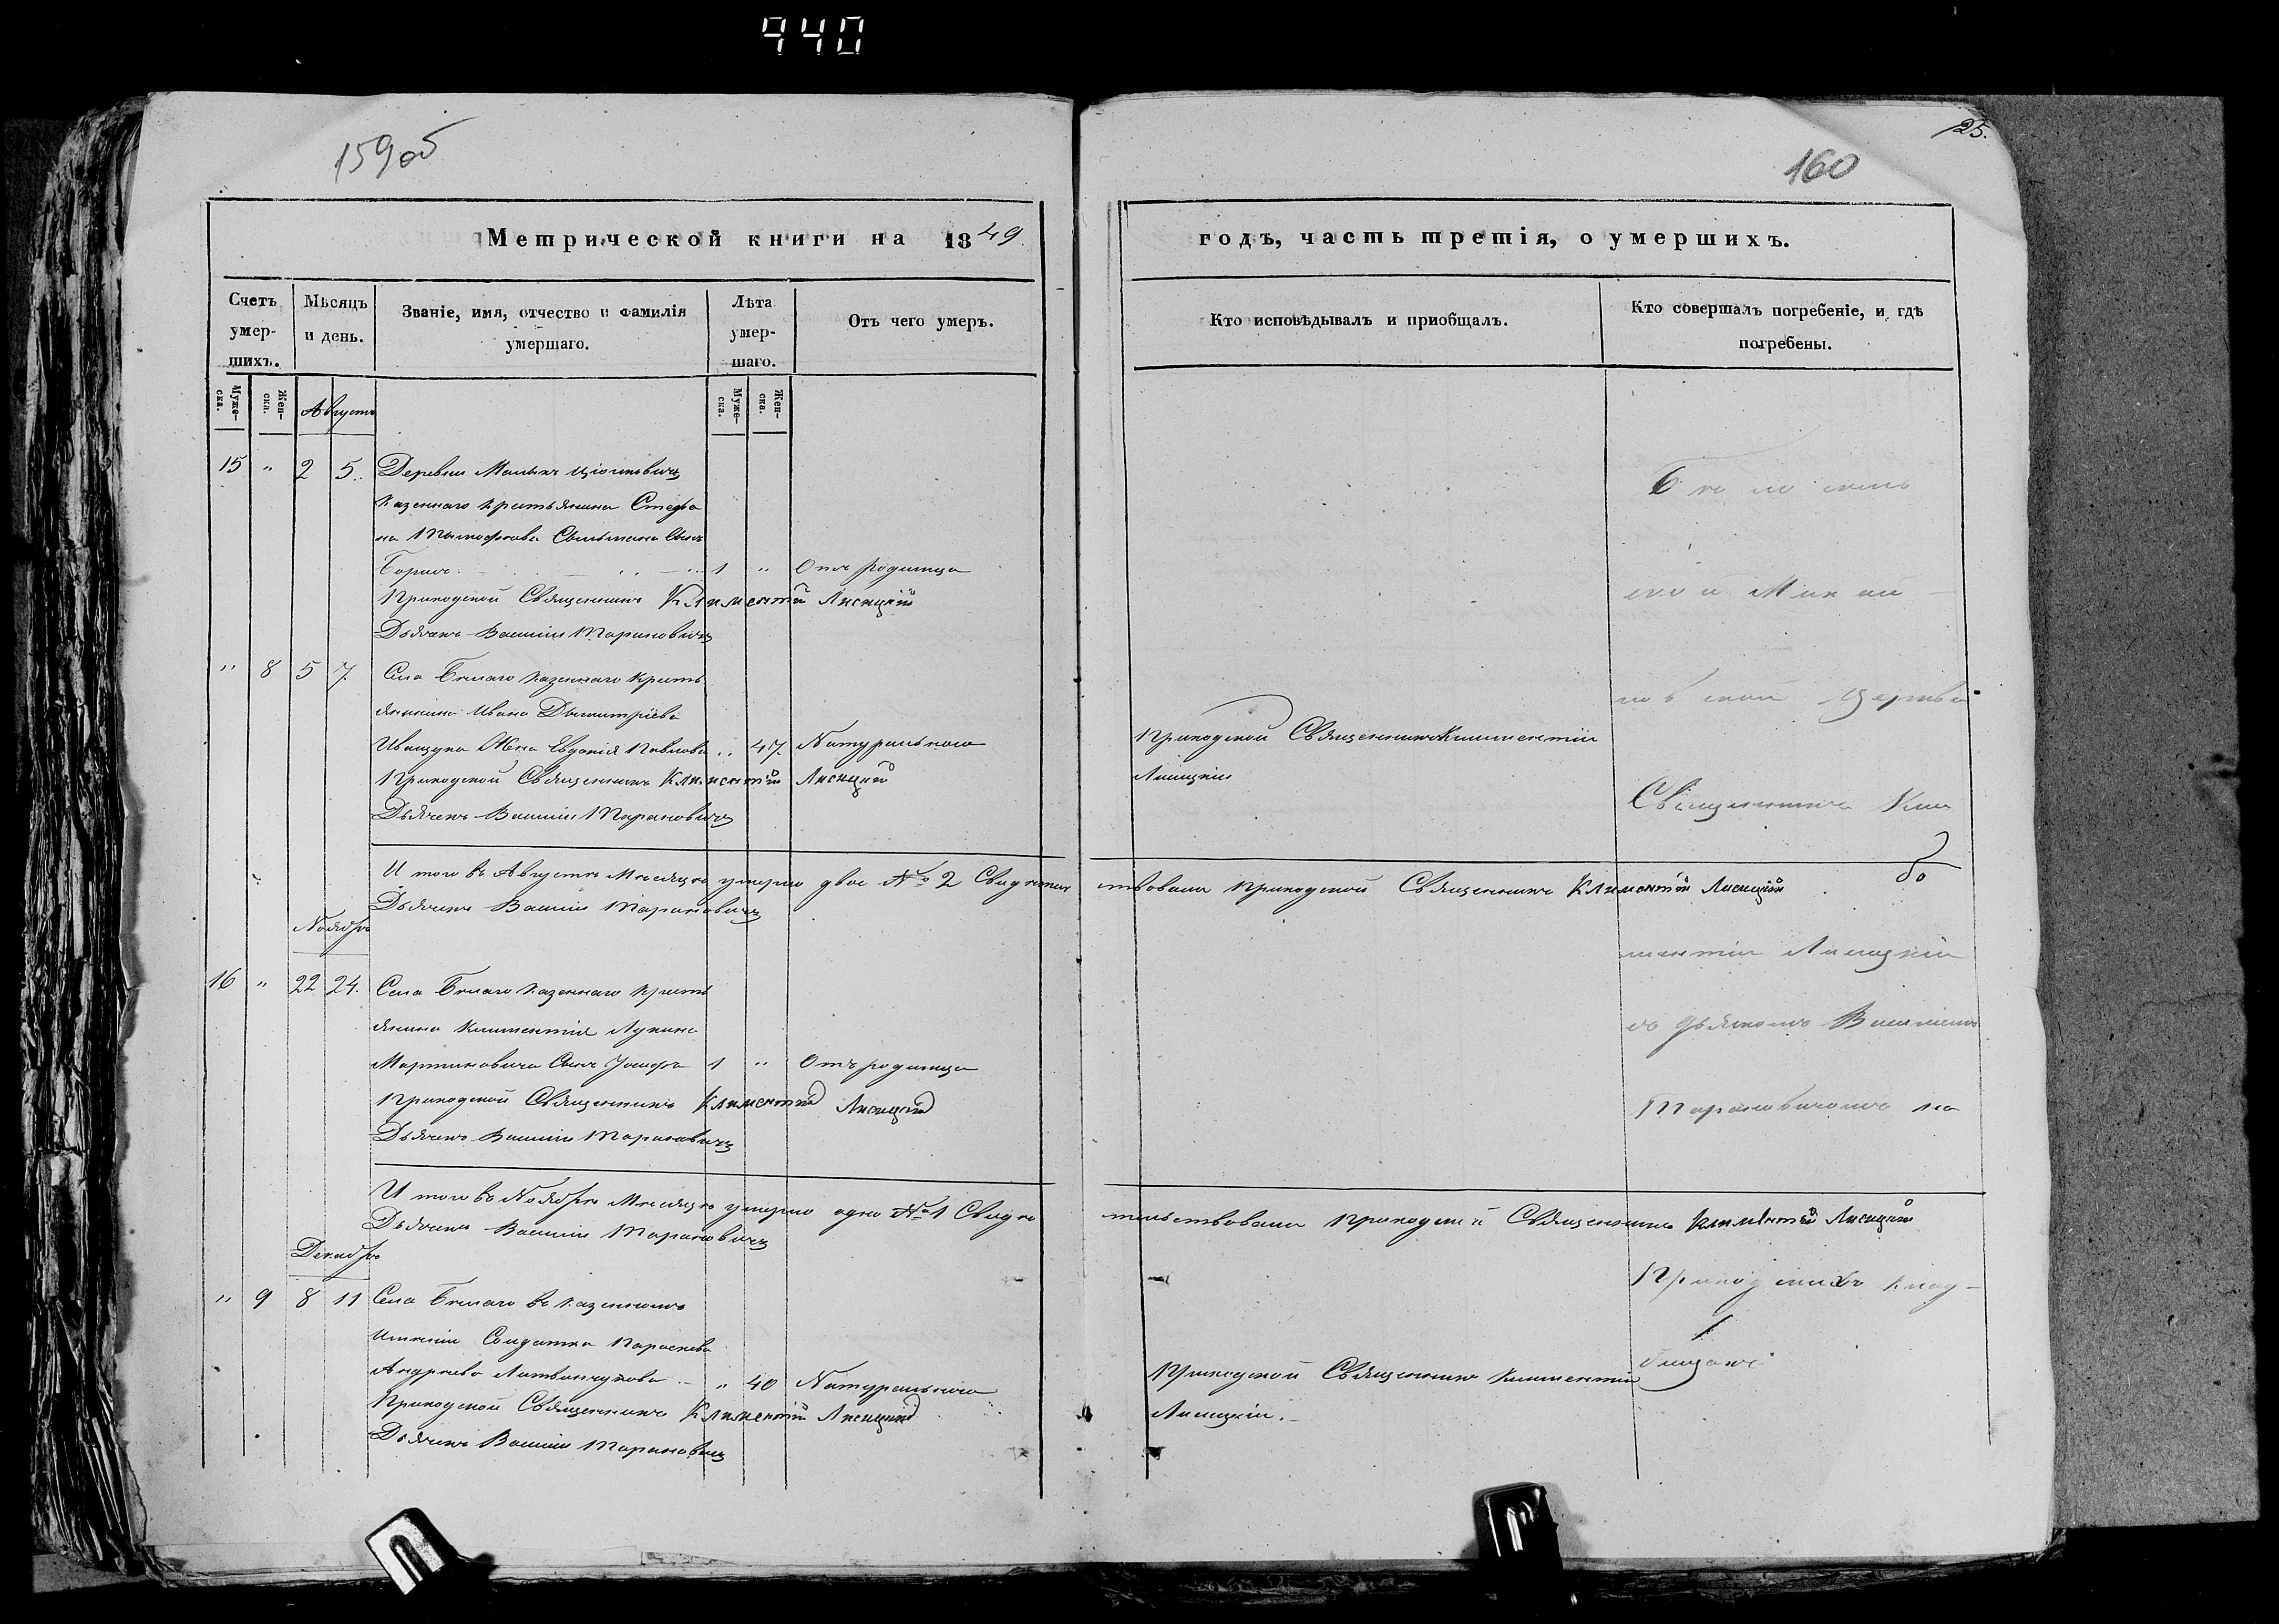 440
159об
Метрической книги на 1849.
Счетъ умер-шихъ.
Мѣсяцъ и день.
Званіе, имя, отчество и фамилія умершаго.
Лѣта умер-шаго.
Отъ чего умеръ.
Муже-ска.
Жен-ска.
Августъ
Муже-ска.
Жен-ска.
15 " 2 5. Деревни Малыхъ
казеннаго крестьянина Стефа
на Тимофѣева сынъ
Борисъ 1 " Отъ родимца
Приходской Священникъ Климентій Лисицкій
Дьячекъ Василій Тарановичъ
" 8 5 7. Села Бѣлаго казеннаго кресть
янина Ивана Дымитріева
Иващука Жена Евдокія Павлова " 47. Натурально
Приходской Священникъ Климентій Лисицкій
Дьячекъ Василій Тарановичъ
И того въ Августѣ Мѣсяцѣ умерло двое № 2 Свидѣтель
Дьячекъ Василій Тарановичъ
Ноябрь
16 " 22 24. Села Бѣлаго казеннаго кресть
янина Климентія Лукина
Мартиновича Сынъ Іосифъ 1 " Отъ родимца
Приходской Священникъ Климентій Лисицкій
Дьячекъ Василій Тарановичъ
И того въ Ноябрѣ Мѣсяцѣ умерло одно № 1 Свидѣ
Дьячекъ Василій Тарановичъ
Декабрь
" 9 8 11 Села Бѣлаго въ казенномъ
Имѣніи Солдатка Параскева
Андреева " 40 Натурально
Приходской Священникъ Климентій Лисицкій
Дьячекъ Василій Тарановичъ
125.
160
годъ, часть третія, о умершихъ.
Кто исповѣдывалъ и пріобщалъ.
Кто совершалъ погребеніе, и гдѣ погребены.
Бѣлосель
ской Микол
ской Церкви
Приходской Священникъ Климентій
Лисицкій
Священникъ Кли
ствовали Приходской Священникъ Климентій Лисицкій
ментій Лисицкій
съ дьячкомъ Василіемъ
Тарановичомъ на
тельствовали Приходской Священникъ Климентій Лисицкій
Приходскихъ клад-
бищахъ
Приходской Священникъ Климентій
Лисицкій.